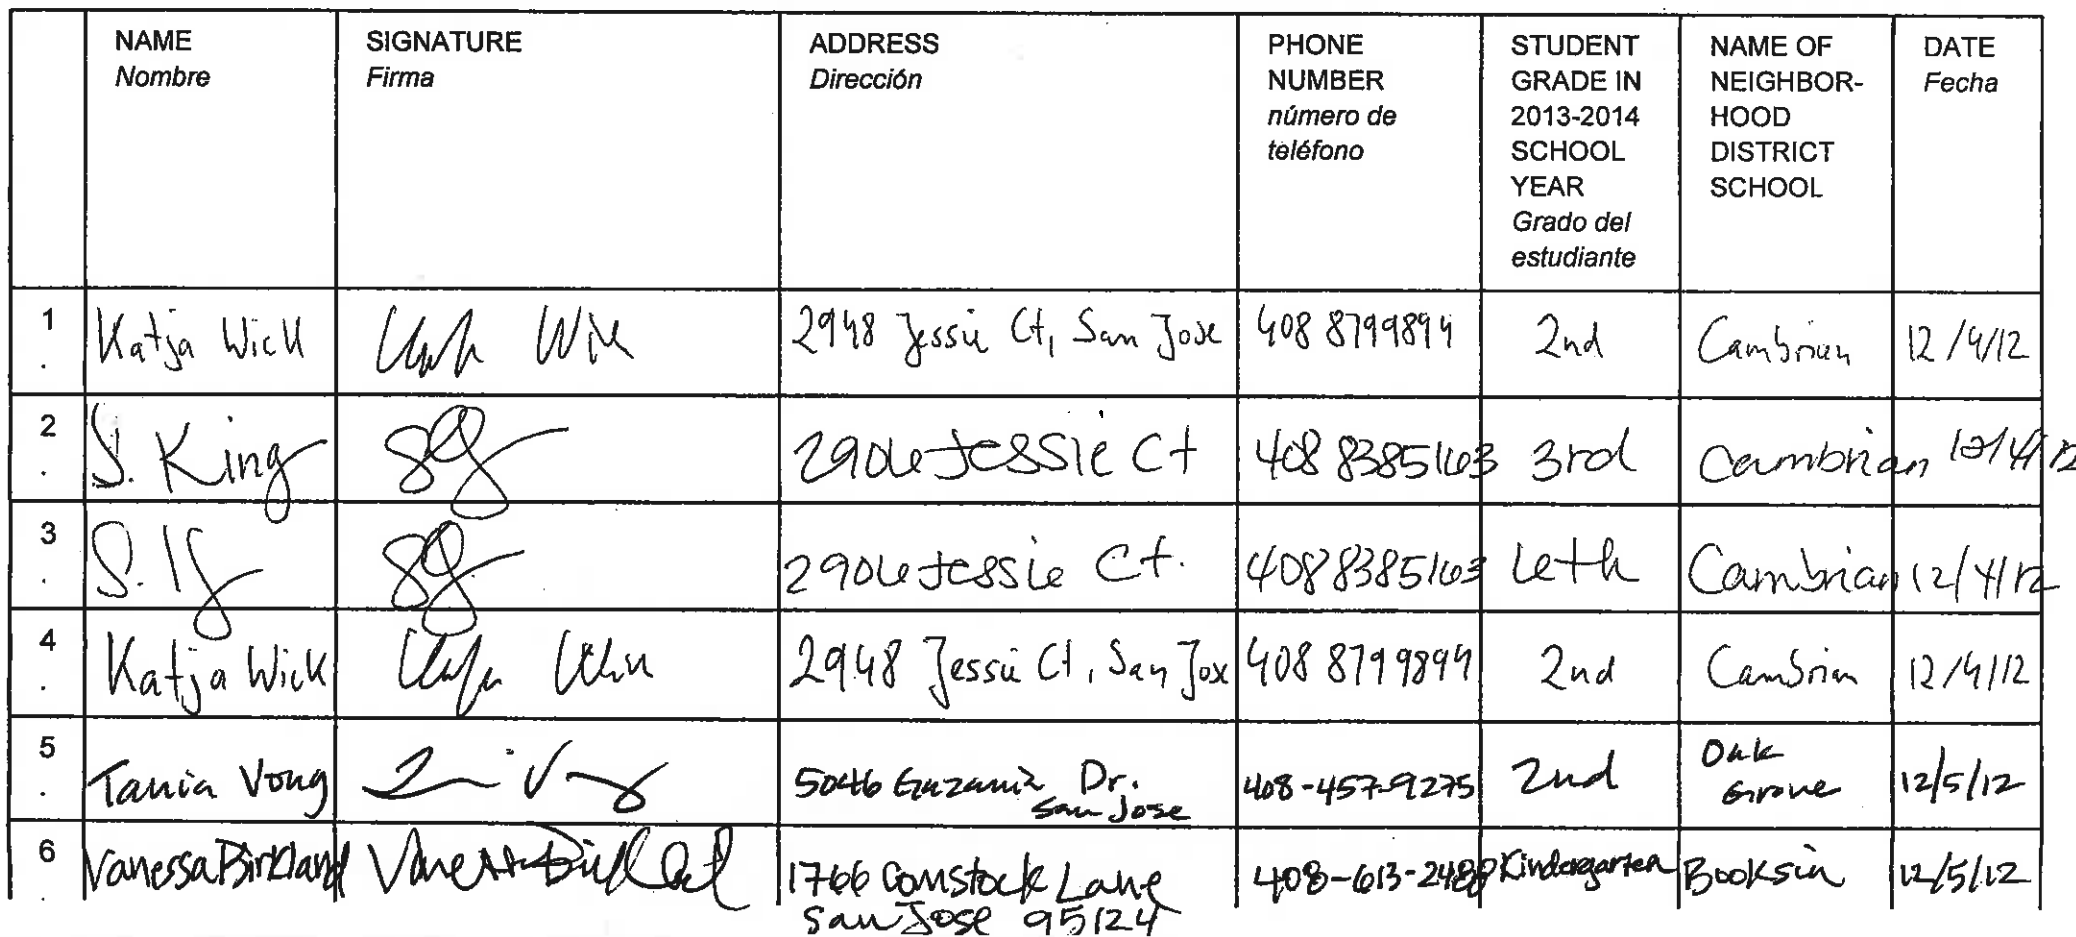 NAME
Nombre
SIGNATURE
Firma
ADDRESS
Dirección
PHONE
NUMBER
número de
teléfono
STUDENT
GRADE IN
2013-2014
SCHOOL
YEAR
Grado del
estudiante
NAME OF
NEIGHBOR-
HOOD
DISTRICT
SCHOOL
DATE
Fecha
1. Katja Wick 2948 Jessie Ct, San Jose 408 8799894 2nd Cambrian 12/4/12
2. S. King 2906 Jessie Ct 408 8385163 3rd Cambrian 12/4/12
3. S. 2906 Jessie Ct. 408 8385163 6th Cambrian 12/4/12
4. Katja Wick 2948 Jessie Ct, San Jose 408 8799894 2nd Cambrian 12/4/12
5. Tania Vong 5046 Gazania Dr. San Jose 408-457-9275 2nd Oak Grove 12/5/12
6. Vanessa Birkland Vanessa Birkland 1766 Comstock Lane 408-613-2488 Kindergarten Booksin 12/5/12
San Jose 95124